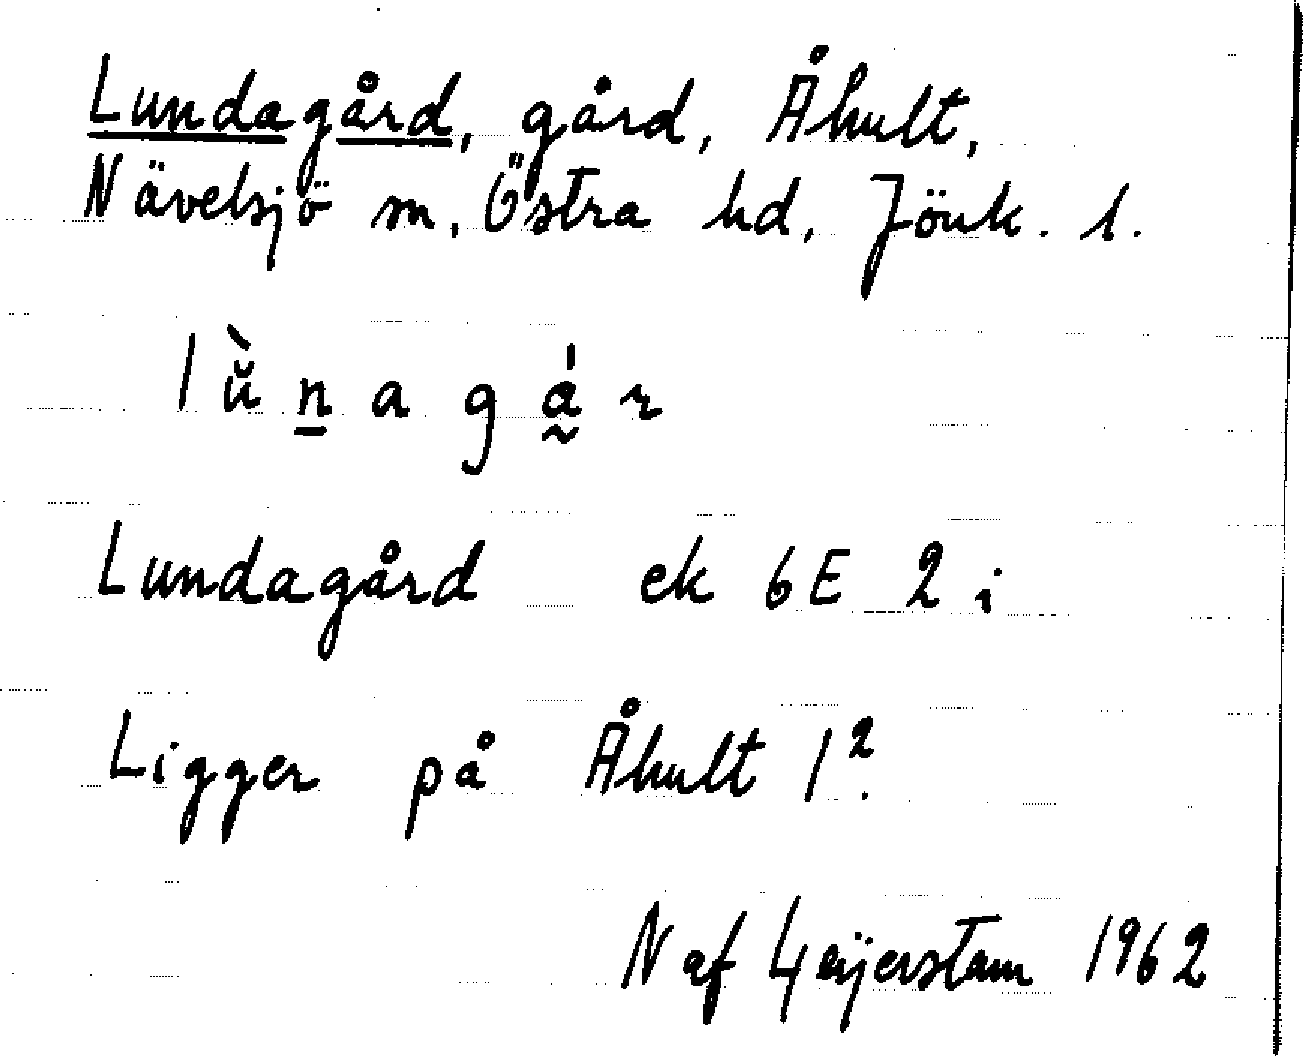 Lundagård, gård, Åhult,
Nävelsjö sn, Östra hd, Jönk. l.
lù̆n̲agá̰r
Lundagård ek 6E 2i
Ligger på Åhult 1².
N af Geijerstam 1962